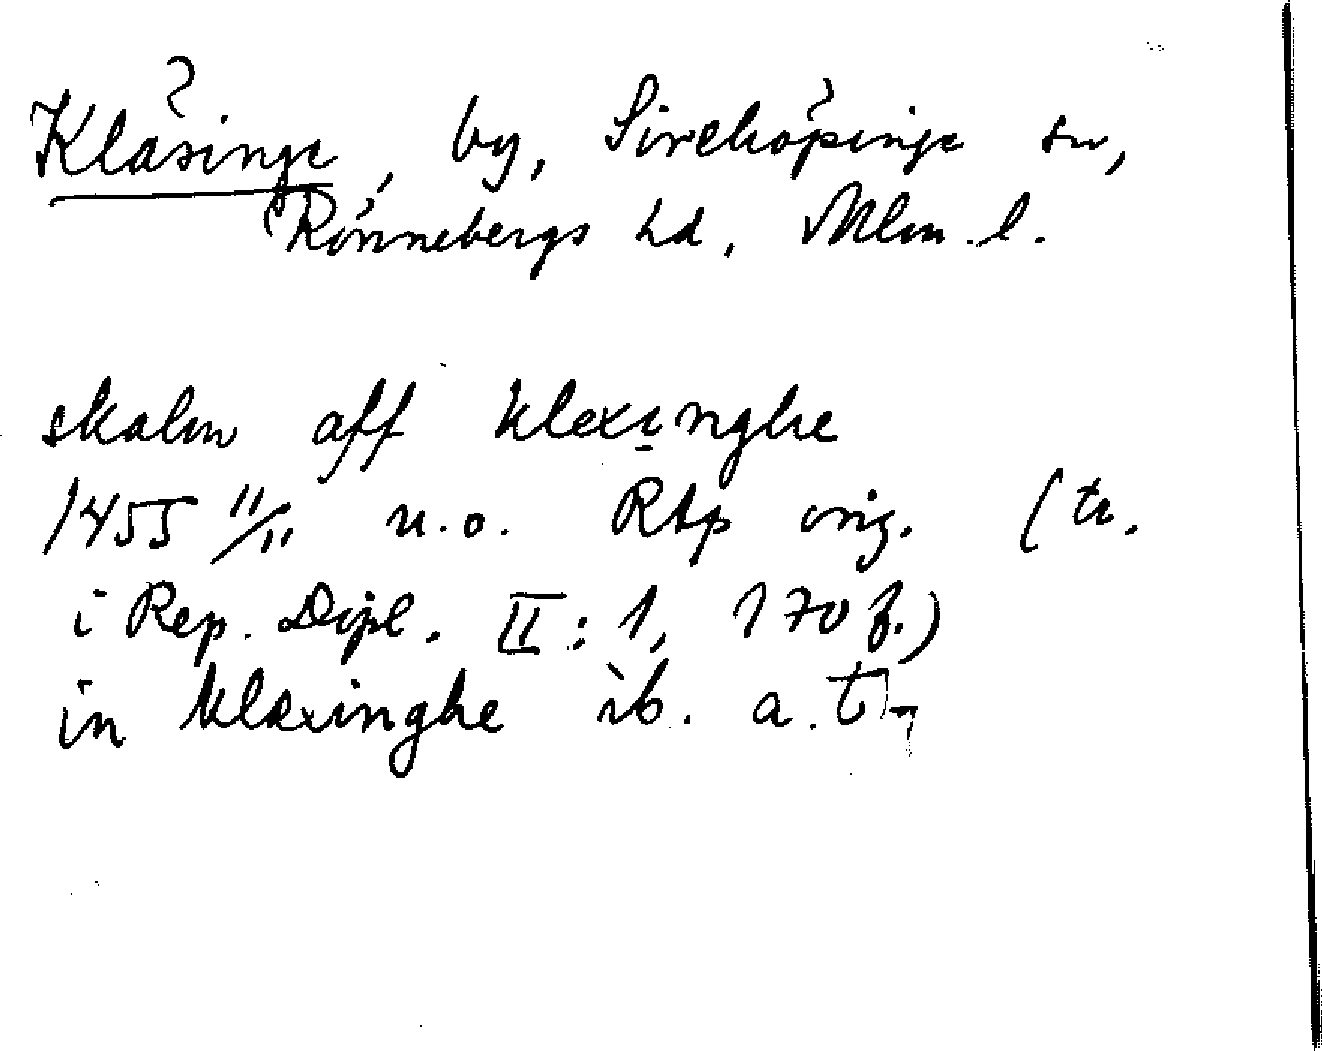 Kläsinge, by, Sireköpinge sn,
Rönnebergs hd, Mlm. l.
skalm aff klexinghe
1455 11/11 u.o. Rtp orig. (tr.
i Rep. Dipl. II:1, 170 f.)
in klexinghe ib. a.t.